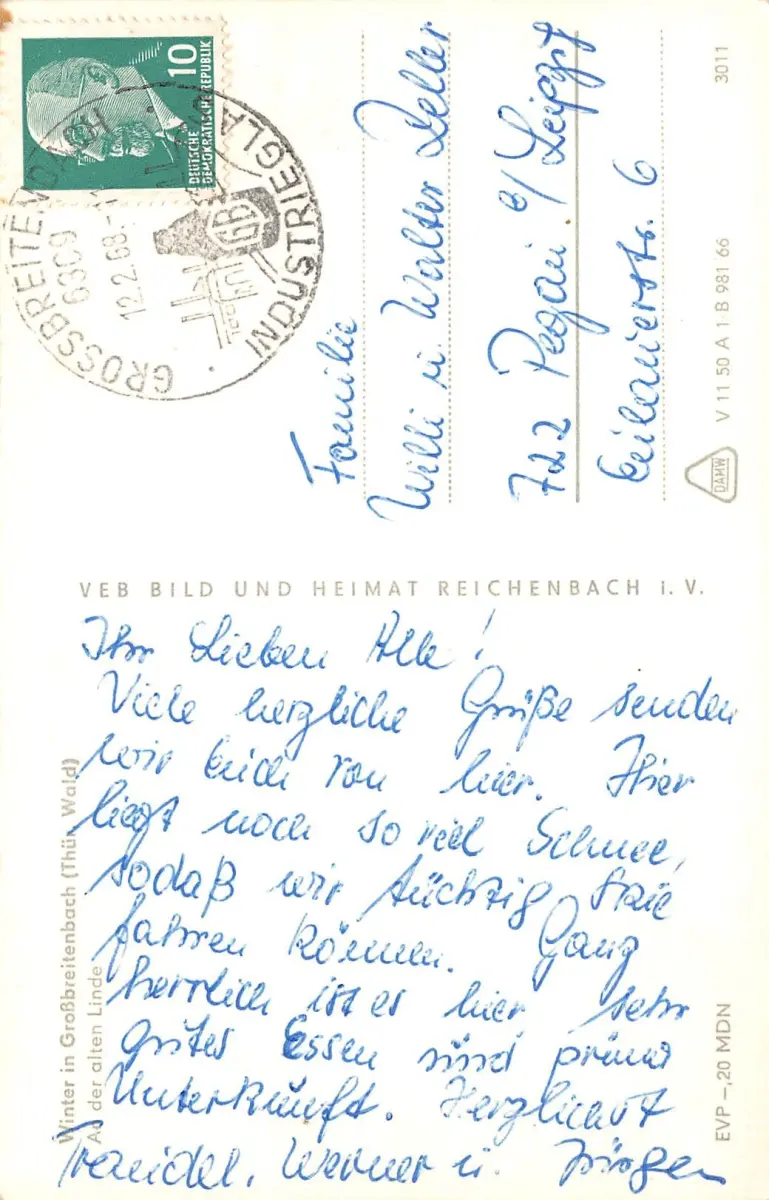 Winter in Großbreitenbach (Thür. Wald)
An der alten Linde
Ihr Lieben Alle!
Viele herzliche Grüße senden
wir Euch von hier. Hier
liegt noch so viel Schnee,
sodaß wir tüchtig Skie
fahren können. Ganz
herrlich ist es hier, sehr
gutes Essen und prima
Unterkünft. Herzlichst
Traudel, Werner u. Jürgen
EVP -,20 MDN
VEB BILD UND HEIMAT REICHENBACH i. V.
10
DEUTSCHE
DEMOKRATISCHE REPUBLIK
GROSSBREITENBACH
6309
12.2.68.-
GB
INDUSTRIEGLA
Familie
Willi u. Walter Deller
722 Pegau b/ Leipzig
Eilauerstr. 6
DAMW
V 11 50 A 1 B 981 66
3011